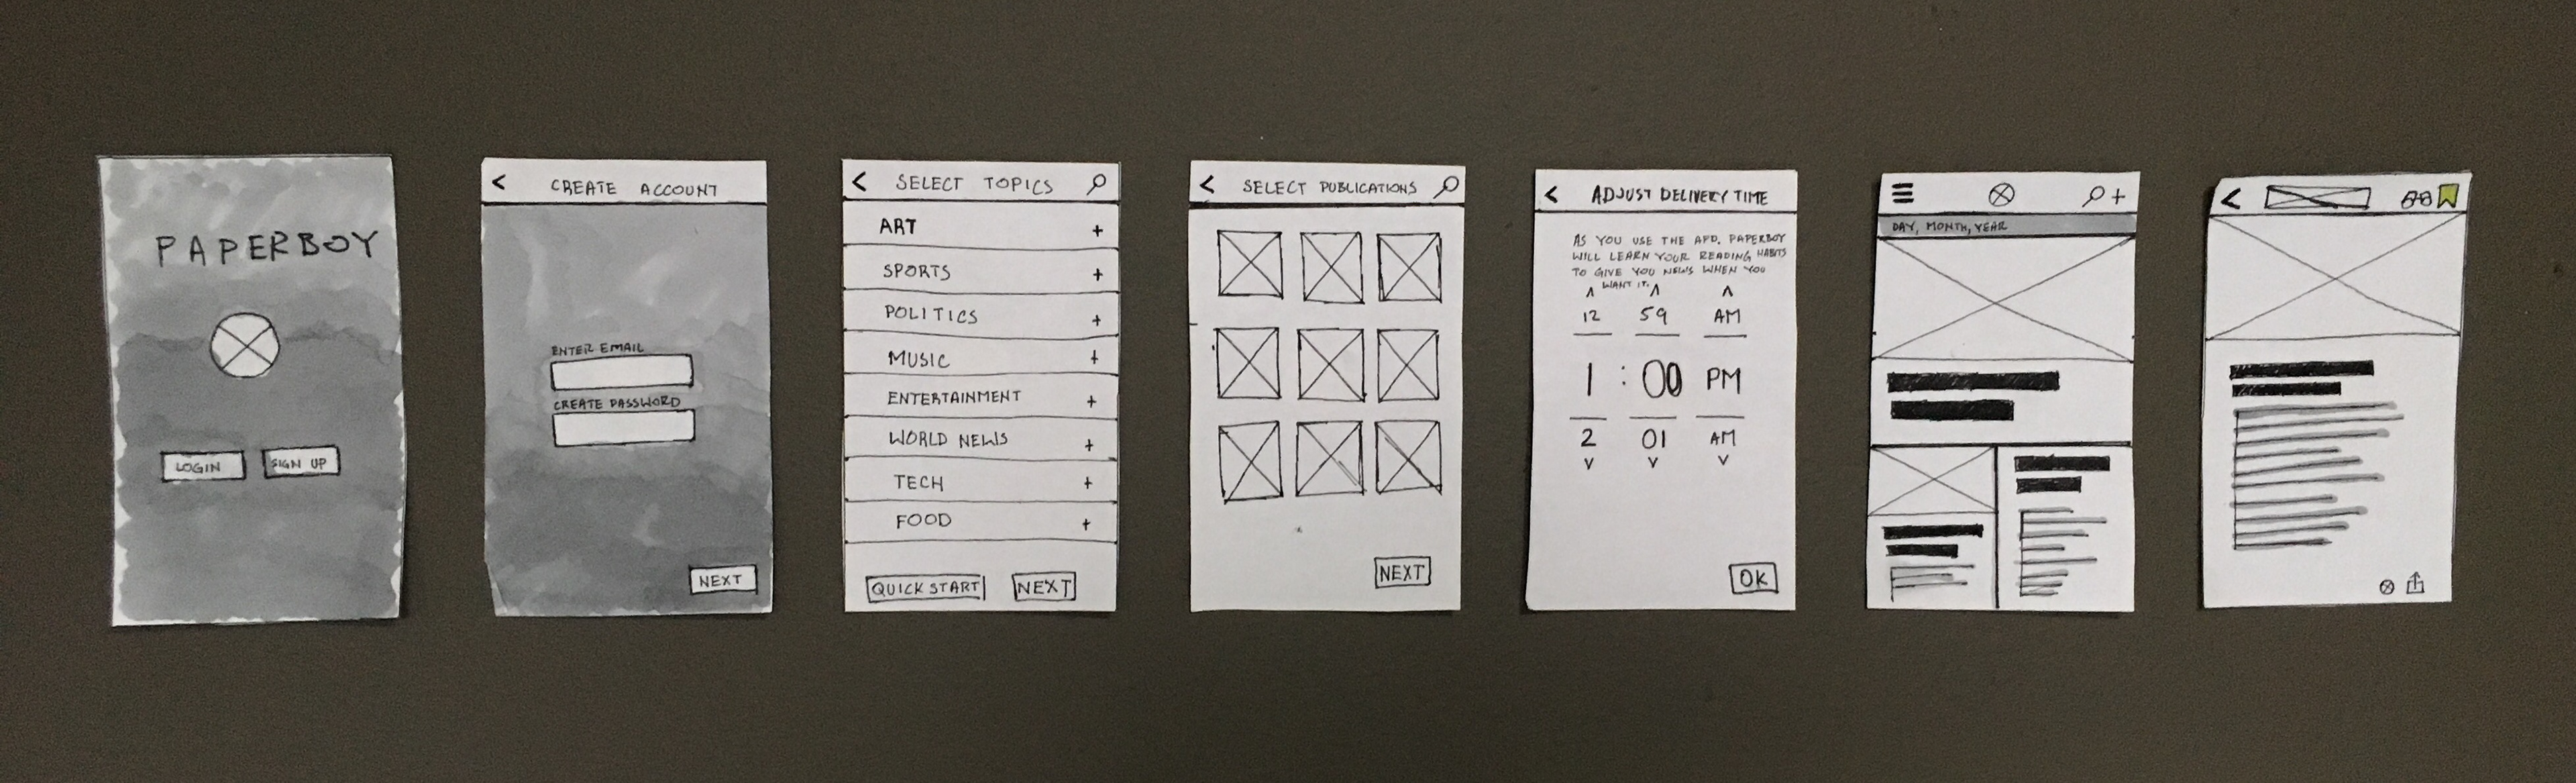 PAPERBOY
LOGIN
SIGN UP
< CREATE ACCOUNT
ENTER EMAIL
CREATE PASSWORD
NEXT
< SELECT TOPICS
ART +
SPORTS +
POLITICS +
MUSIC +
ENTERTAINMENT +
WORLD NEWS +
TECH +
FOOD +
QUICK START
NEXT
< SELECT PUBLICATIONS
NEXT
< ADJUST DELIVERY TIME
AS YOU USE THE APP, PAPERBOY
WILL LEARN YOUR READING HABITS
TO GIVE YOU NEWS WHEN YOU
WANT IT.
12 59 AM
1 : 00 PM
2 01 AM
OK
+
DAY, MONTH, YEAR
<